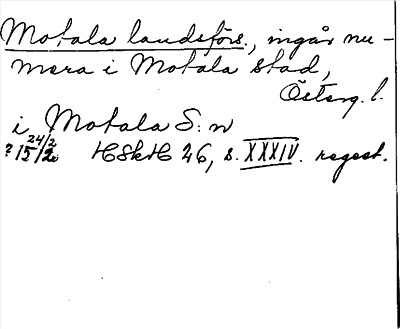 Motala landsförs., ingår nu-
mera i Motala stad,
Österg. l.
i Motala S:n
24/2
? 15/2 HSkH 26, s. XXXIV. regest.